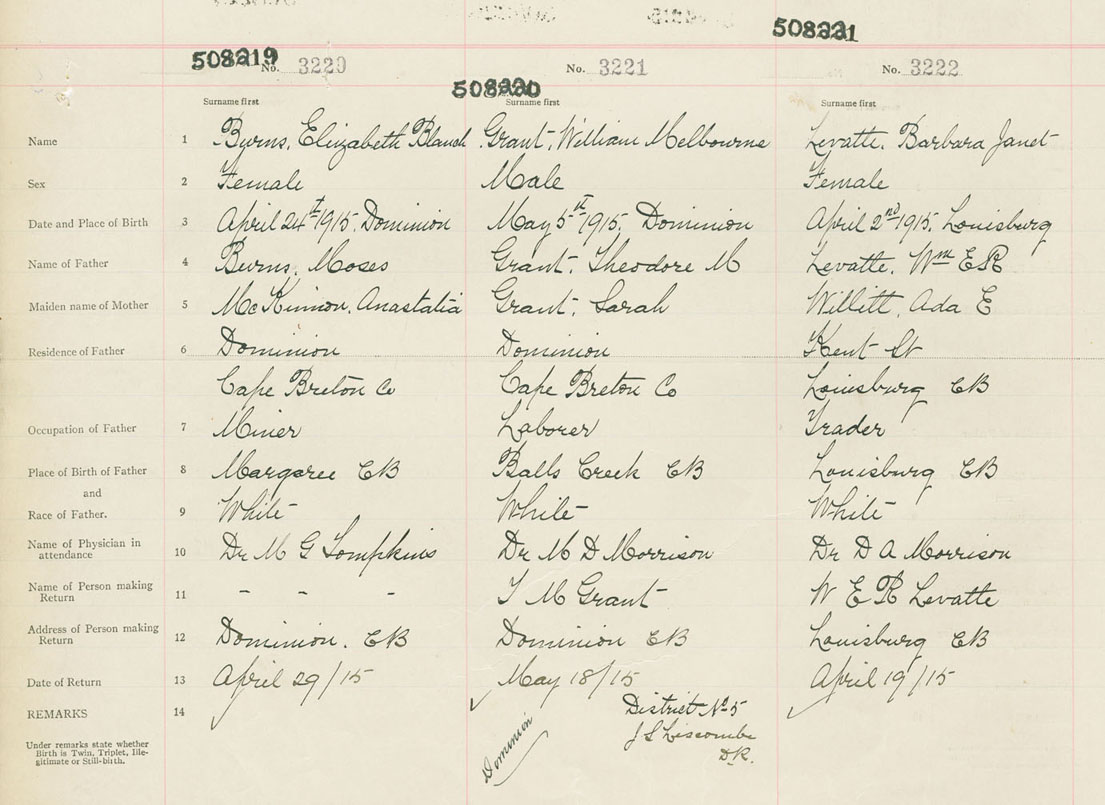 508221
508219
No. 3220 No. 3221 No. 3222
508220
Surname first Surname first Surname first
Name 1 Burns, Elizabeth Blanch Grant, William Melbourne Levatte, Barbara Janet
Sex 2 Female Male Female
Date and Place of Birth 3 April 24th 1915. Dominion May 5th 1915. Dominion April 2nd 1915. Louisburg
Name of Father 4 Burns, Moses Grant, Theodore M Levatte, Wm E R
Maiden name of Mother 5 McKinnon, Anastatia Grant, Sarah Willitt, Ada E
Residence of Father 6 Dominion Dominion Kent St
Cape Breton Co Cape Breton Co Louisburg CB
Occupation of Father 7 Miner Laborer Trader
Place of Birth of Father 8 Margaree CB Balls Creek CB Louisburg CB
and
Race of Father. 9 White White White
Name of Physician in
attendance 10 Dr M G Tompkins Dr M D Morrison Dr D A Morrison
Name of Person making
Return 11 - - - T M Grant W E R Levatte
Address of Person making
Return 12 Dominion. CB Dominion CB Louisburg CB
Date of Return 13 April 29/15 May 18/15 April 19/15
REMARKS 14 District No 5
J S Liscombe
D.R.
Dominion
Under remarks state whether
Birth is Twin, Triplet, Ille-
gitimate or Still-birth.